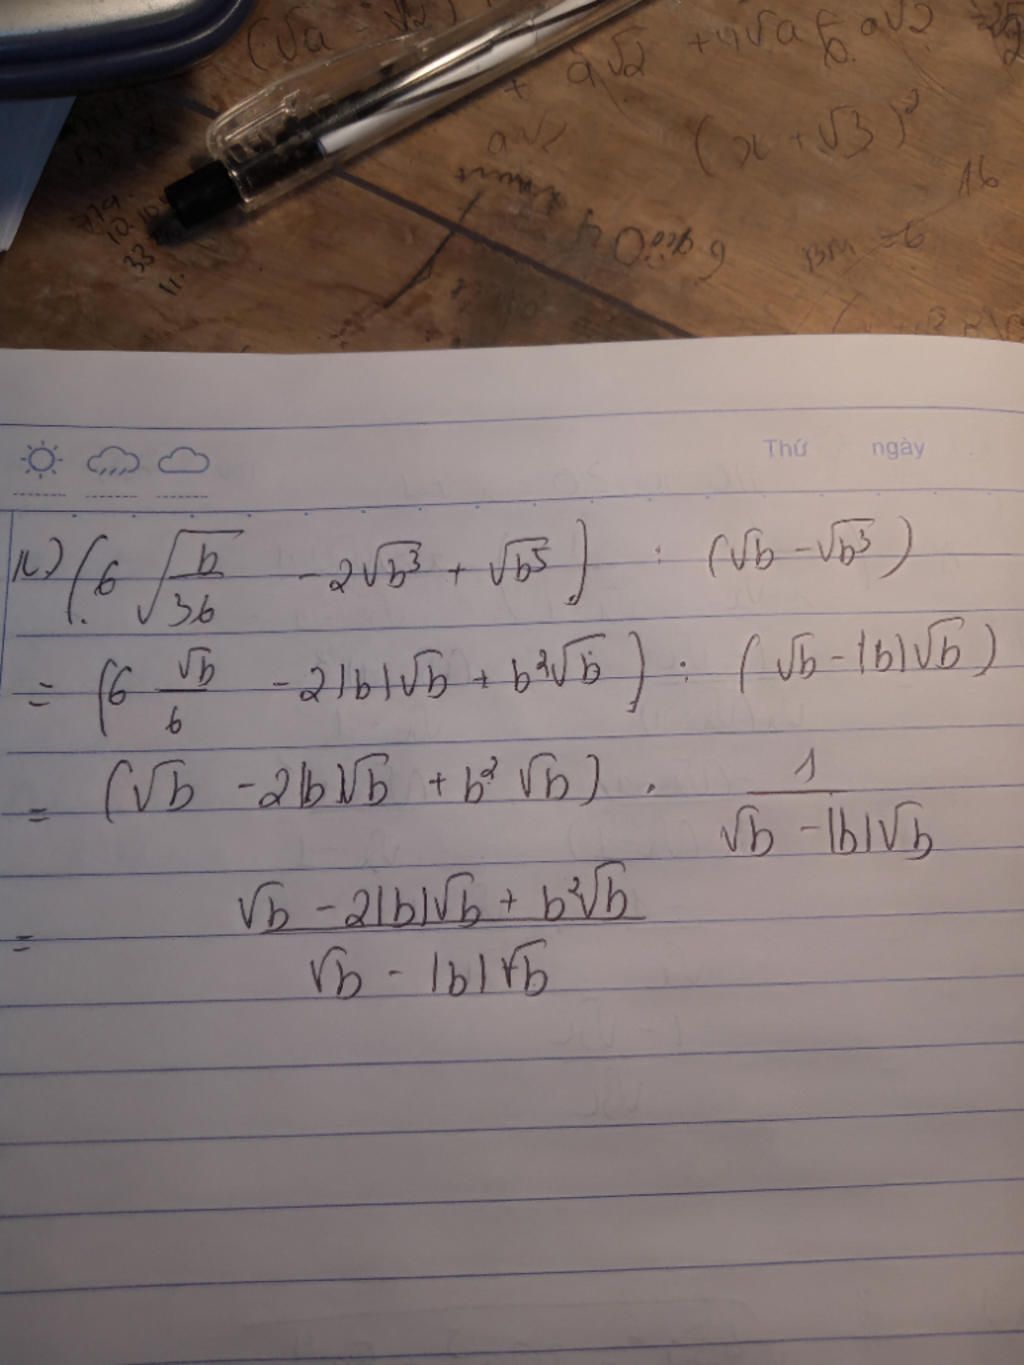 (√a - √2)
+ a√2 + 4√a
a√2
(x + √3)²
a√2
16
BM = 6
6 giờ 04
33
11.
Thứ ngày
k) (6 √(b/36) - 2√b³ + √b⁵) : (√b - √b³)
= (6 √b/6 - 2|b|√b + b²√b) : (√b - |b|√b)
= (√b - 2|b|√b + b² √b) . 1/(√b - |b|√b)
= (√b - 2|b|√b + b²√b)/(√b - |b|√b)